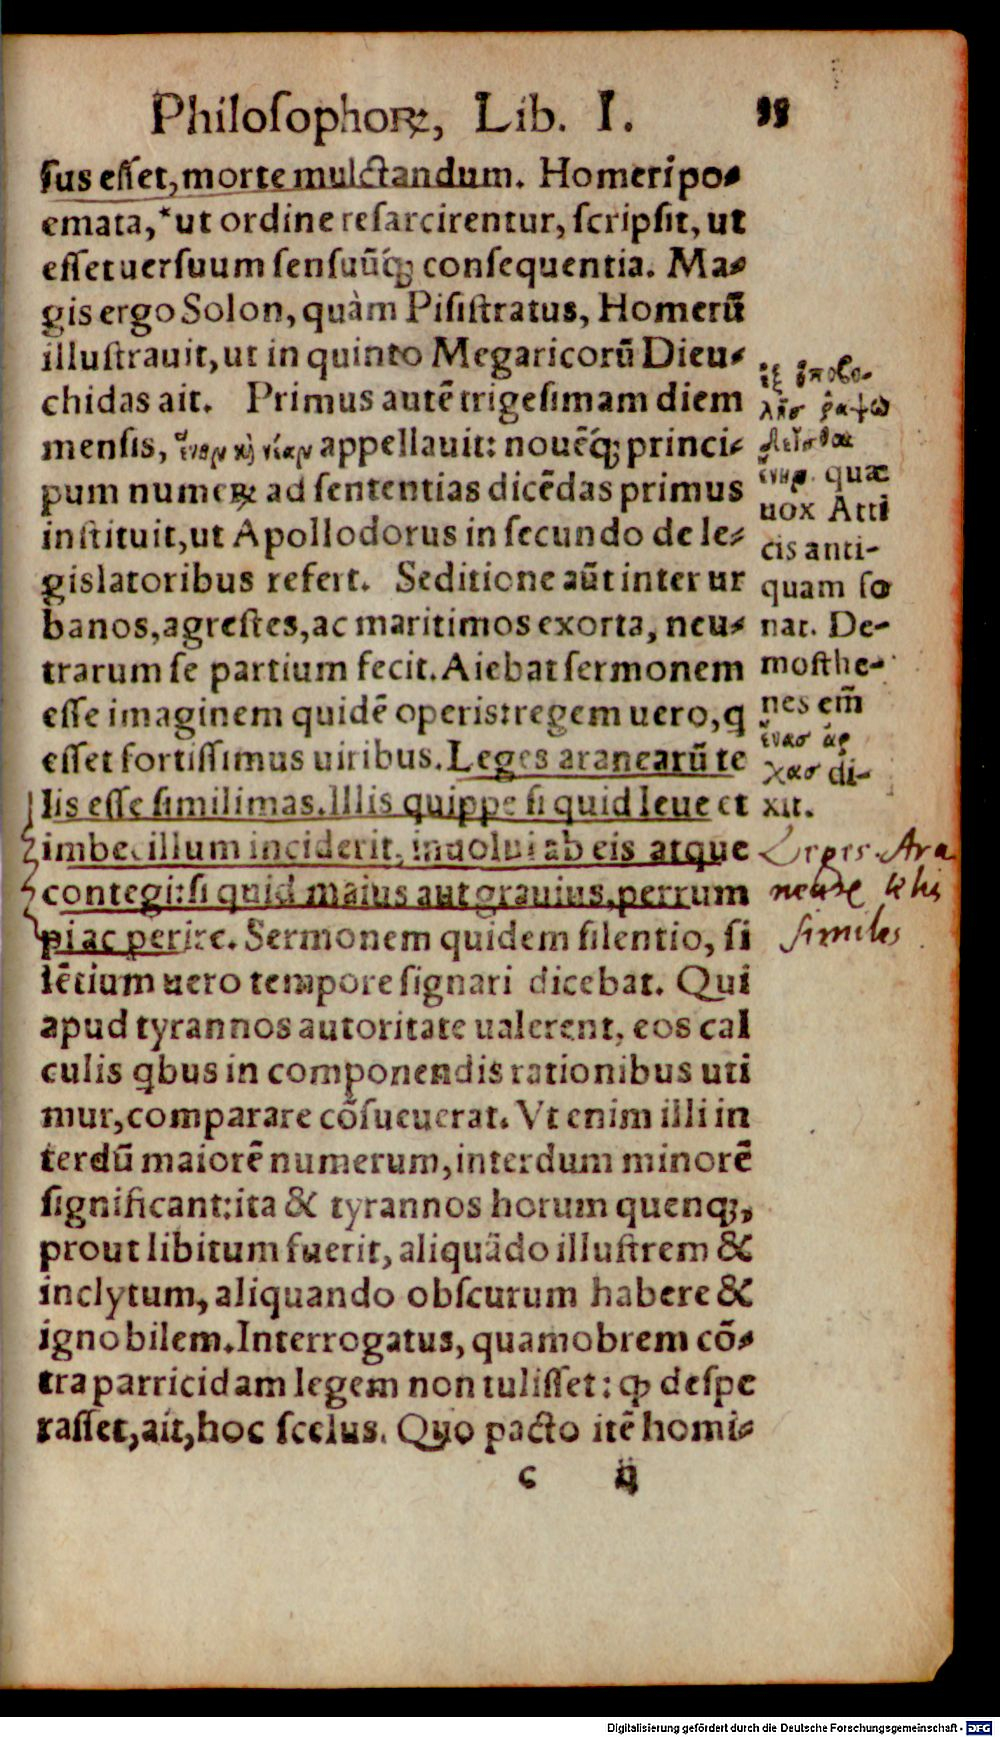 Philosophoꝝ, Lib. I. 35
ſus eſſet, morte mulctandum. Homeri po-
emata, *ut ordine reſarcirentur, ſcripſit, ut
eſſet uerſuum ſenſuũq́; conſequentia. Ma-
gis ergo Solon, quàm Piſiſtratus, Homerũ
illuſtrauit, ut in quinto Megaricorũ Dieu-
chidas ait. Primus autẽ trigeſimam diem
menſis, ἕνην καὶ νέαν appellauit: nouẽq́; princi-
pum numeꝝ ad ſententias dicẽdas primus
inſtituit, ut Apollodorus in ſecundo de le-
gislatoribus refert. Seditione aũt inter ur
banos, agreſtes, ac maritimos exorta, neu-
trarum ſe partium fecit. Aiebat ſermonem
eſſe imaginem quidẽ operis: regem uero, q
eſſet fortiſſimus uiribus. Leges aranearũ te
lis eſſe ſimilimas. Illis quippe ſi quid leue et
imbecillum inciderit, inuolui ab eis atque
contegi: ſi quid maius aut grauius, perrum
pi ac perire. Sermonem quidem ſilentio, ſi
lẽtium uero tempore ſignari dicebat. Qui
apud tyrannos autoritate ualerent, eos cal
culis qbus in componendis rationibus uti
mur, comparare cõſueuerat. Vt enim illi in
terdũ maiorẽ numerum, interdum minorẽ
ſignificant: ita & tyrannos horum quenq;,
prout libitum fuerit, aliquãdo illuſtrem &
inclytum, aliquando obſcurum habere &
ignobilem. Interrogatus, quamobrem cõ-
tra parricidam legem non tuliſſet: ꝙ deſpe
raſſet, ait, hoc ſcelus. Quo pacto itẽ homi-
c ij
ἐξ ὑποβο-
λῆσ ῥαψῳ
δεῖσθαι
ἕνην. quæ
uox Atti
cis anti-
quam ſo
nat. De-
moſthe-
nes em̃
ἕνασ ἀρ
χὰσ di-
xit.
Leges Ara
nearꝝ telis
similes
Digitalisierung gefördert durch die Deutsche Forschungsgemeinschaft - DFG